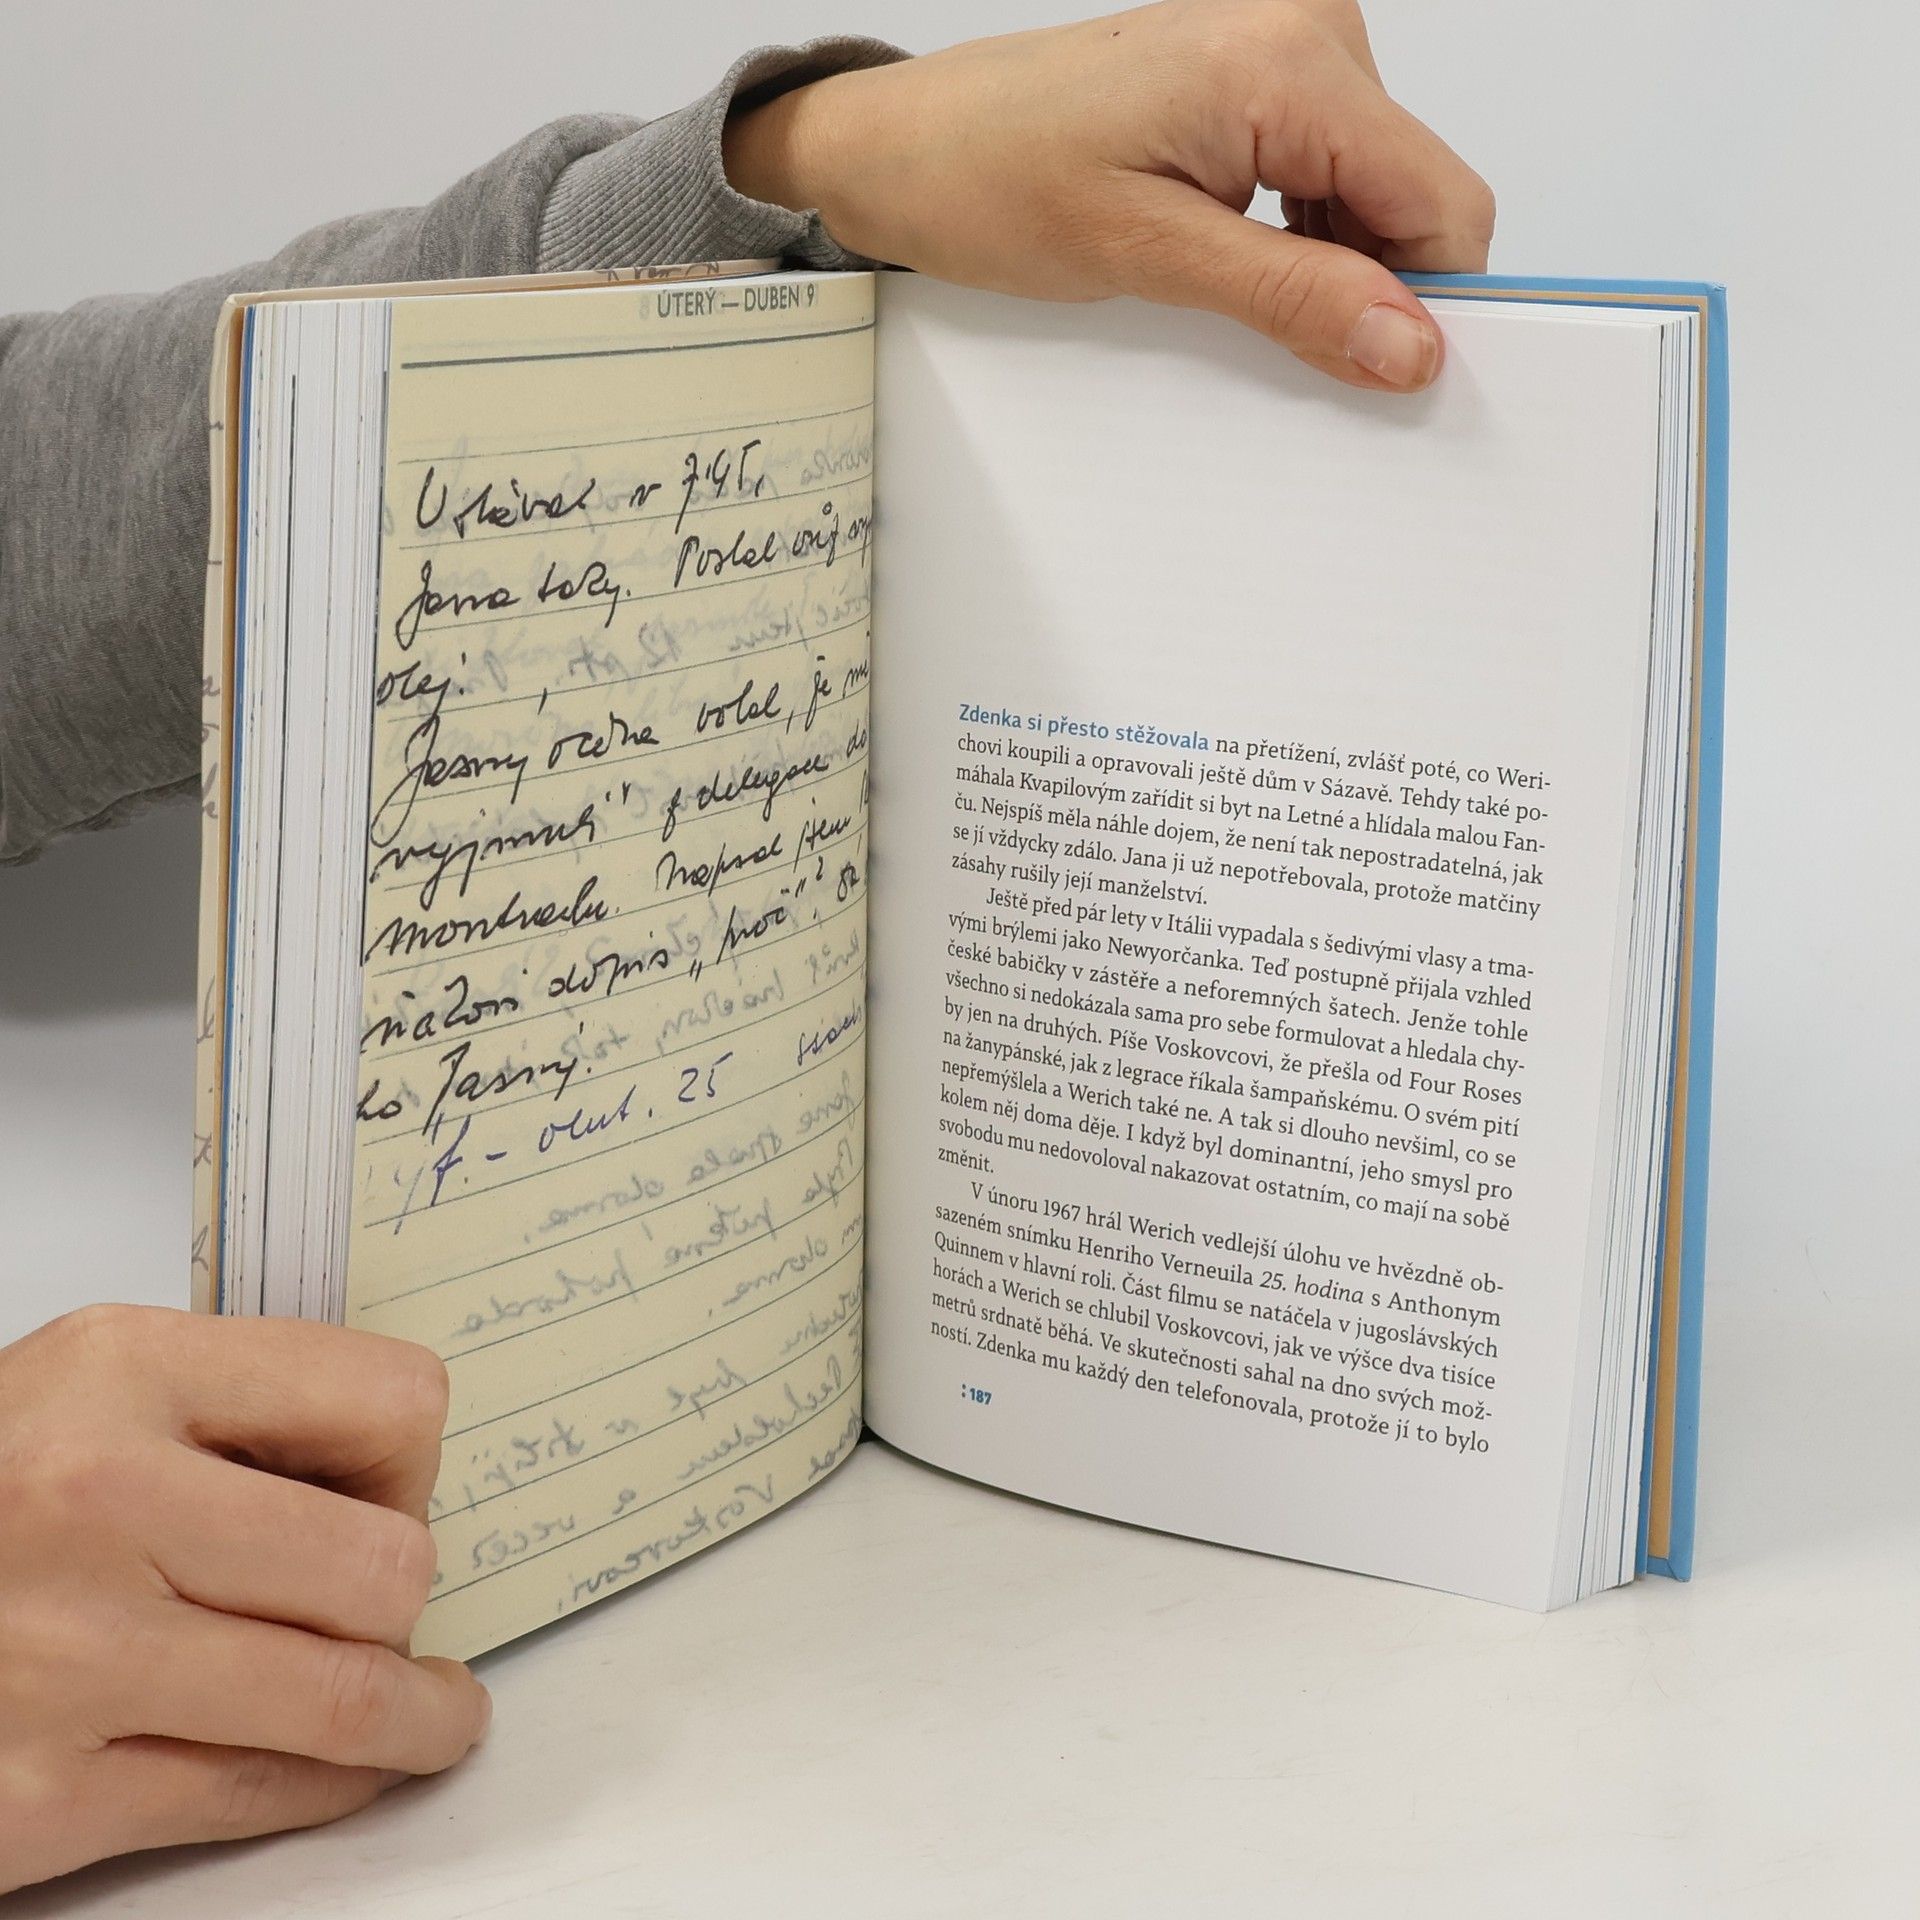 ÚTERÝ — DUBEN 9
Vstával v 7.45,
Jana taky. Poslal
olej.
Jasný volal, je
"vyjmul" z delegace do
montrealu. Napsal jsem
dopis „proč"?
Jasný.
25
Zdenka si přesto stěžovala na přetížení, zvlášť poté, co Weri-
chovi koupili a opravovali ještě dům v Sázavě. Tehdy také po-
máhala Kvapilovým zařídit si byt na Letné a hlídala malou Fan-
ču. Nejspíš měla náhle dojem, že není tak nepostradatelná, jak
se jí vždycky zdálo. Jana ji už nepotřebovala, protože matčiny
zásahy rušily její manželství.
Ještě před pár lety v Itálii vypadala s šedivými vlasy a tma-
vými brýlemi jako Newyorčanka. Teď postupně přijala vzhled
české babičky v zástěře a neforemných šatech. Jenže tohle
všechno si nedokázala sama pro sebe formulovat a hledala chy-
by jen na druhých. Píše Voskovcovi, že přešla od Four Roses
na žanypánské, jak z legrace říkala šampaňskému. O svém pití
nepřemýšlela a Werich také ne. A tak si dlouho nevšiml, co se
kolem něj doma děje. I když byl dominantní, jeho smysl pro
svobodu mu nedovoloval nakazovat ostatním, co mají na sobě
změnit.
V únoru 1967 hrál Werich vedlejší úlohu ve hvězdně ob-
sazeném snímku Henriho Verneuila 25. hodina s Anthonym
Quinnem v hlavní roli. Část filmu se natáčela v jugoslávských
horách a Werich se chlubil Voskovcovi, jak ve výšce dva tisíce
metrů srdnatě běhá. Ve skutečnosti sahal na dno svých mož-
ností. Zdenka mu každý den telefonovala, protože jí to bylo
:187